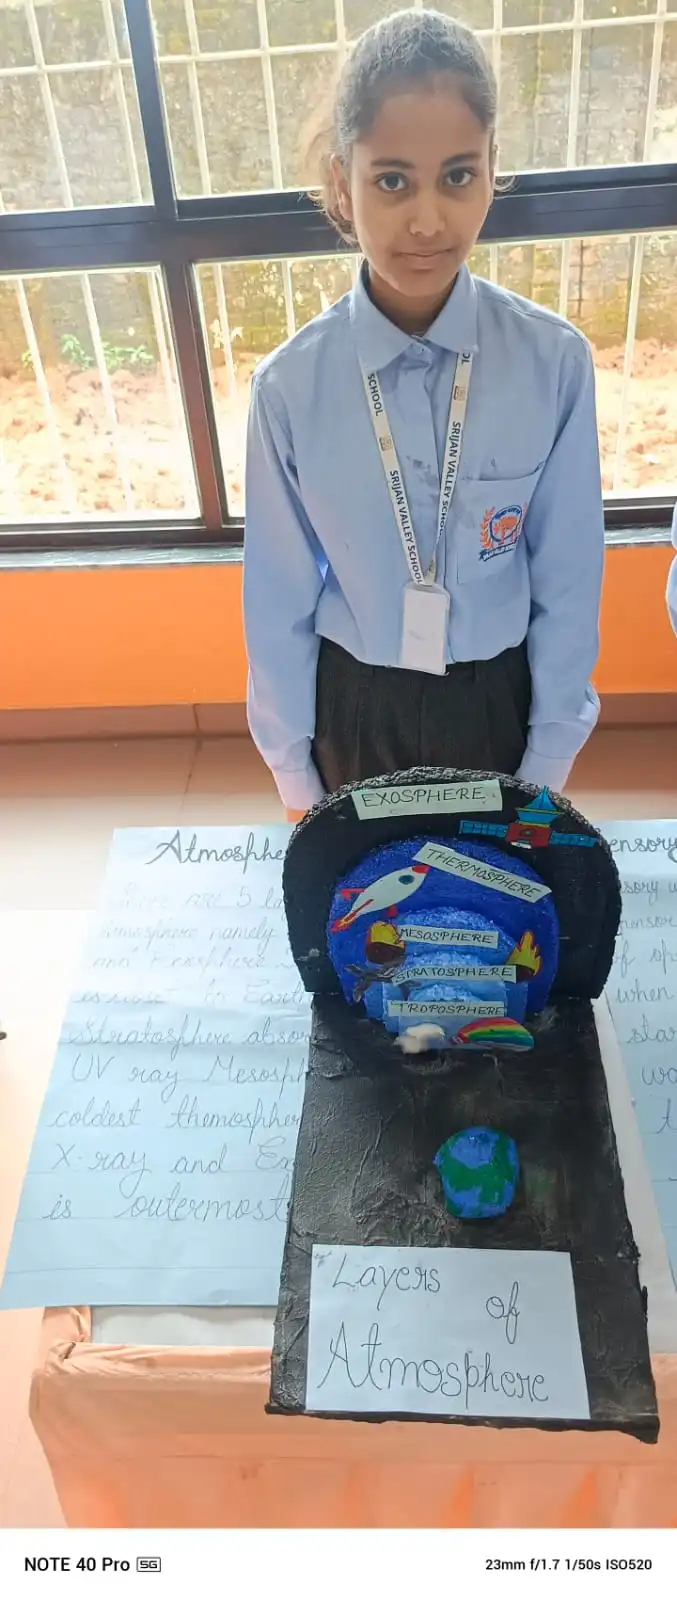 SCHOOL
SRIJAN VALLEY SCHOOL
SRIJAN VALLEY SCHOOL
EXOSPHERE
THERMOSPHERE
MESOSPHERE
STRATOSPHERE
TROPOSPHERE
Atmosphe
There are 5 la
atmosphere namely
and Exosphere
Earth
Stratosphere absor
UV ray Mesosph
coldest themospher
X-ray and Ex
is outermost
ensory
when
star
Layers
of
Atmosphere
NOTE 40 Pro 5G
23mm f/1.7 1/50s ISO520